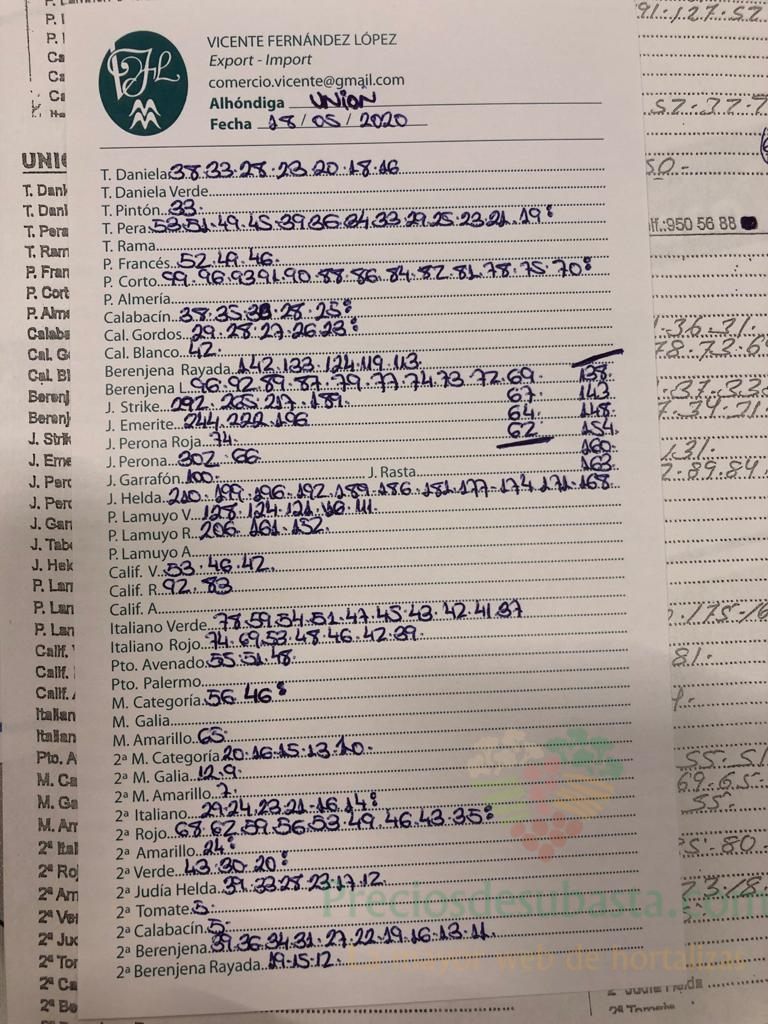 VICENTE FERNÁNDEZ LÓPEZ
Export - Import
comercio.vicente@gmail.com
Alhóndiga UNION
Fecha 18/05/2020
T. Daniela 38.33.28.23.20.18.16
T. Daniela Verde
T. Pintón 33.
T. Pera 53.51.49.45.39.36.34.33.29.25.23.21.19:
T. Rama
P. Francés 52.49.46.
P. Corto 99.96.93.91.90.88.86.84.82.81.78.75.70:
P. Almería
Calabacín 38.35.30.28.25:
Cal. Gordos 29.28.27.26.23:
Cal. Blanco 42.
Berenjena Rayada 142.133.124.119.113.
Berenjena L. 96.92.89.87.79.77.74.73.72.69. 138.
J. Strike 292.265.217.189. 67. 143
J. Emerite 244.222.196 64. 148.
J. Perona Roja 74. 62 154.
J. Perona 302.66 160.
J. Garrafón 100. J. Rasta 163.
J. Helda 210.199.196.192.189.186.181.177.174.171.168
P. Lamuyo V. 128.124.121.116.111.
P. Lamuyo R. 206.161.152.
P. Lamuyo A.
Calif. V. 53.46.42.
Calif. R. 92.83
Calif. A.
Italiano Verde 78.59.54.51.47.45.43.42.41.37
Italiano Rojo 74.69.53.48.46.42.39.
Pto. Avenado 55.51.48.
Pto. Palermo
M. Categoría 56.46:
M. Galia
M. Amarillo 65.
2ª M. Categoría 20.16.15.13.10.
2ª M. Galia 12.9.
2ª M. Amarillo 7.
2ª Italiano 29.24.23.21.16.14:
2ª Rojo 68.62.59.56.53.49.46.43.35:
2ª Amarillo 24:
2ª Verde 43.30.20:
2ª Judía Helda 39.33.28.23.17.12
2ª Tomate 5.
2ª Calabacín 5.
2ª Berenjena 39.36.34.31.27.22.19.16.13.11.
2ª Berenjena Rayada 19.15.12.
Preciosdesubasta.com
La mayor web de hortalizas